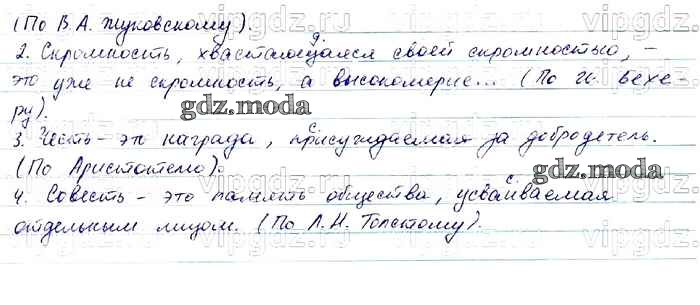 (По В.А. Жуковскому).
д.
2. Скромность, хвастающаяся своей скромностью, –
это уже не скромность, а высокомерие... (По И. Бехе-
ру).
gdz.moda
с.
3. Честь – это награда, присуждаемая за добродетель.
(По Аристотелю).
gdz.moda
с.
4. Совесть – это память общества, усваиваемая
отдельным лицом. (По Л.Н. Толстому).
vipgdz.ru